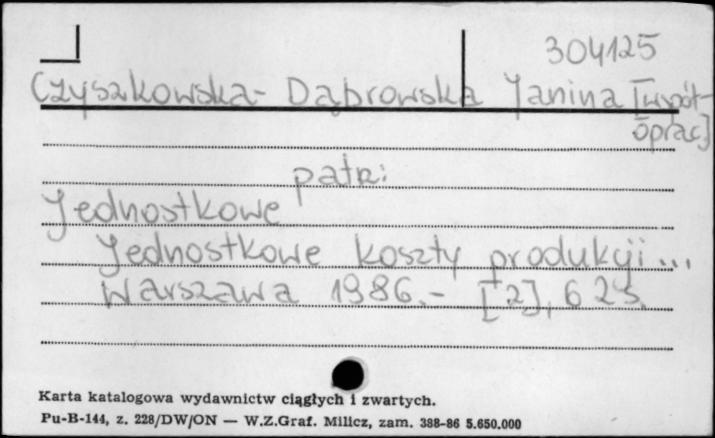 304125
Czyszkowska-Dąbrowska Janina [współ-
oprac]
patrz:
Jednostkowe
Jednostkowe koszty produkcji...
Warszawa 1986.- [2], 62 s.
Karta katalogowa wydawnictw ciągłych i zwartych.
Pu-B-144, z. 228/DW/ON — W.Z.Graf. Milicz, zam. 388-86 5.650.000